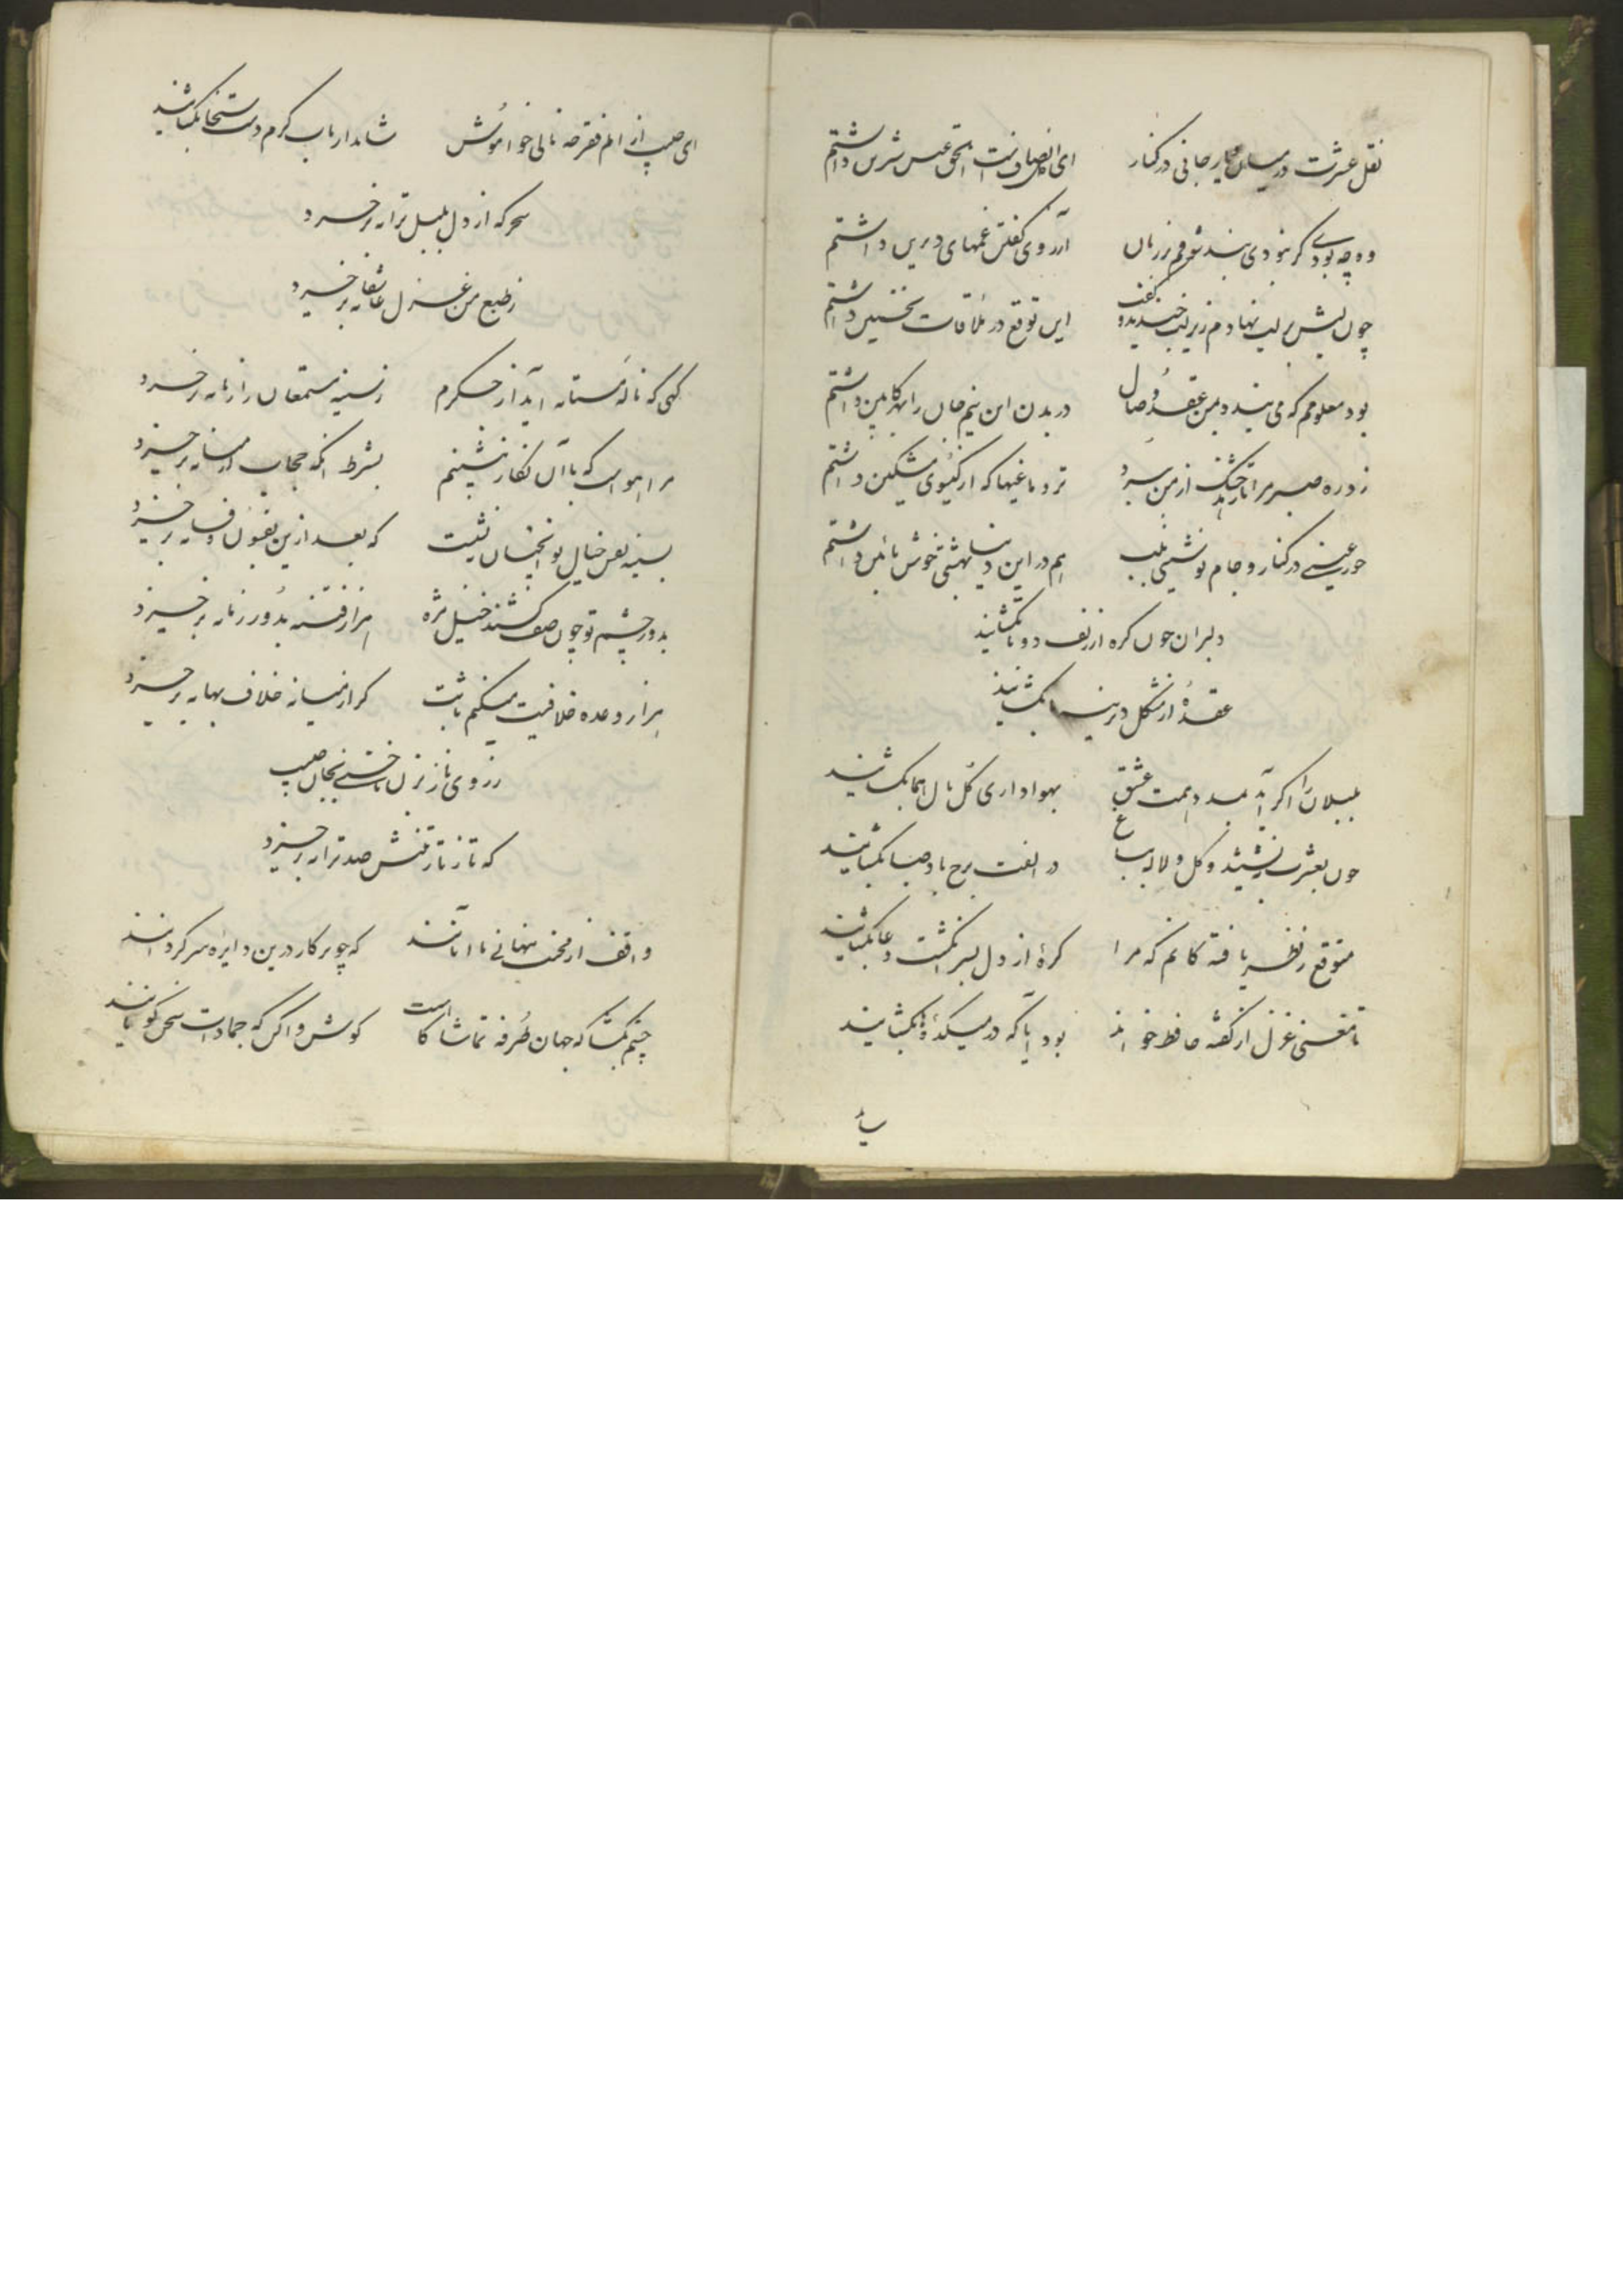 نقل عشرت در میان جانی در کنار ای دانستم
وه چه بودی گر نبودی بند شوقم بر زبان آرزوی گفتن غمهای دیرین داشتم
چون لبش بر لب نهادم زیر لب خندید و گفت این توقع در ملاقات نخستین داشتم
بود معلومم که می بندد بمن عقد وصال در بدن این نیم جان را بهر کابین داشتم
زد ره صبر مرا از من ببرد تر دماغیها که از گیسوی مشکین داشتم
حور عینی در کنار و جام نوشینی بلب هم در این دنیا بهشتی خوش بآئین داشتم
دلبران چون گره از زلف دوتا بگشایند
عقدهٔ از مشکل دیرینهٔ ما بگشایند
بلبلان را اگر آید مدد همت عشق بهواداری گل بال هما بگشایند
چون بعشرت بنشینند و گل و لاله بباغ در الفت برخ باد صبا بگشایند
متوقع ز نظر یافته گانم که مرا گرهٔ از دل بسر انگشت دعا بگشایند
تا مغنی غزل از گفته حافظ خواند بود آیا که در میکدهٔ بگشایند
ای از الم فقر چه نالی خاموش شاید ارباب کرم دست سخا بگشایند
سحر که از دل بلبل ترانه برخیزد
ز طبع من غزل عاشقانه برخیزد
گهی که نالهٔ مستانه آید از جگرم ز سینه مستمعان را زبانه برخیزد
مرا هواست که با آن نگار بنشینم بشرط آنکه حجاب از میانه برخیزد
بسینه نقش خیال تو آنچنان ننشست که بعد ازین بفسون و فسانه برخیزد
بدور چشم تو چون صف کشند خیل مژه هزار فتنه بدور زمانه برخیزد
هزار وعده خلافیت میکنم ثابت گر از میانه خلاف بهانه برخیزد
ز روی ناز بزن ناخنی بجان
که تا ز تار تنش صد ترانه برخیزد
واقف از مخفی نهانی ما آنانند که چو پرکار درین دایره سرگردانند
چشم بگشا که جهان طرفه تماشاگاست گوش واکن که جمادات سخن گویانند